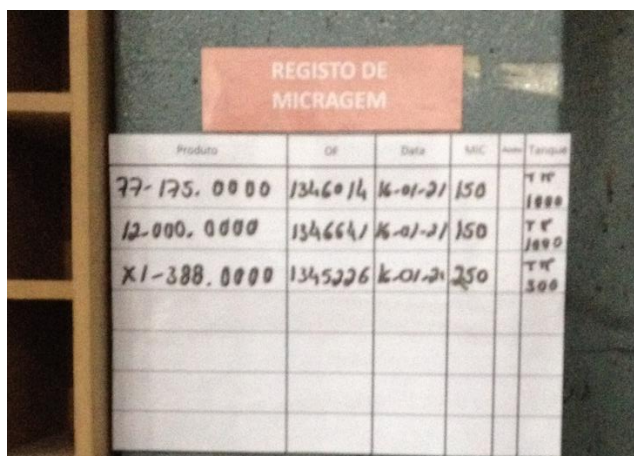 REGISTO DE
MICRAGEM
Produto OF Data MIC Tanque
77-175.0000 1346014 16-01-21 150 TP 1000
12-000.0000 1346641 16-01-21 150 TP 1000
X1-388.0000 1345226 16-01-21 250 TP 500